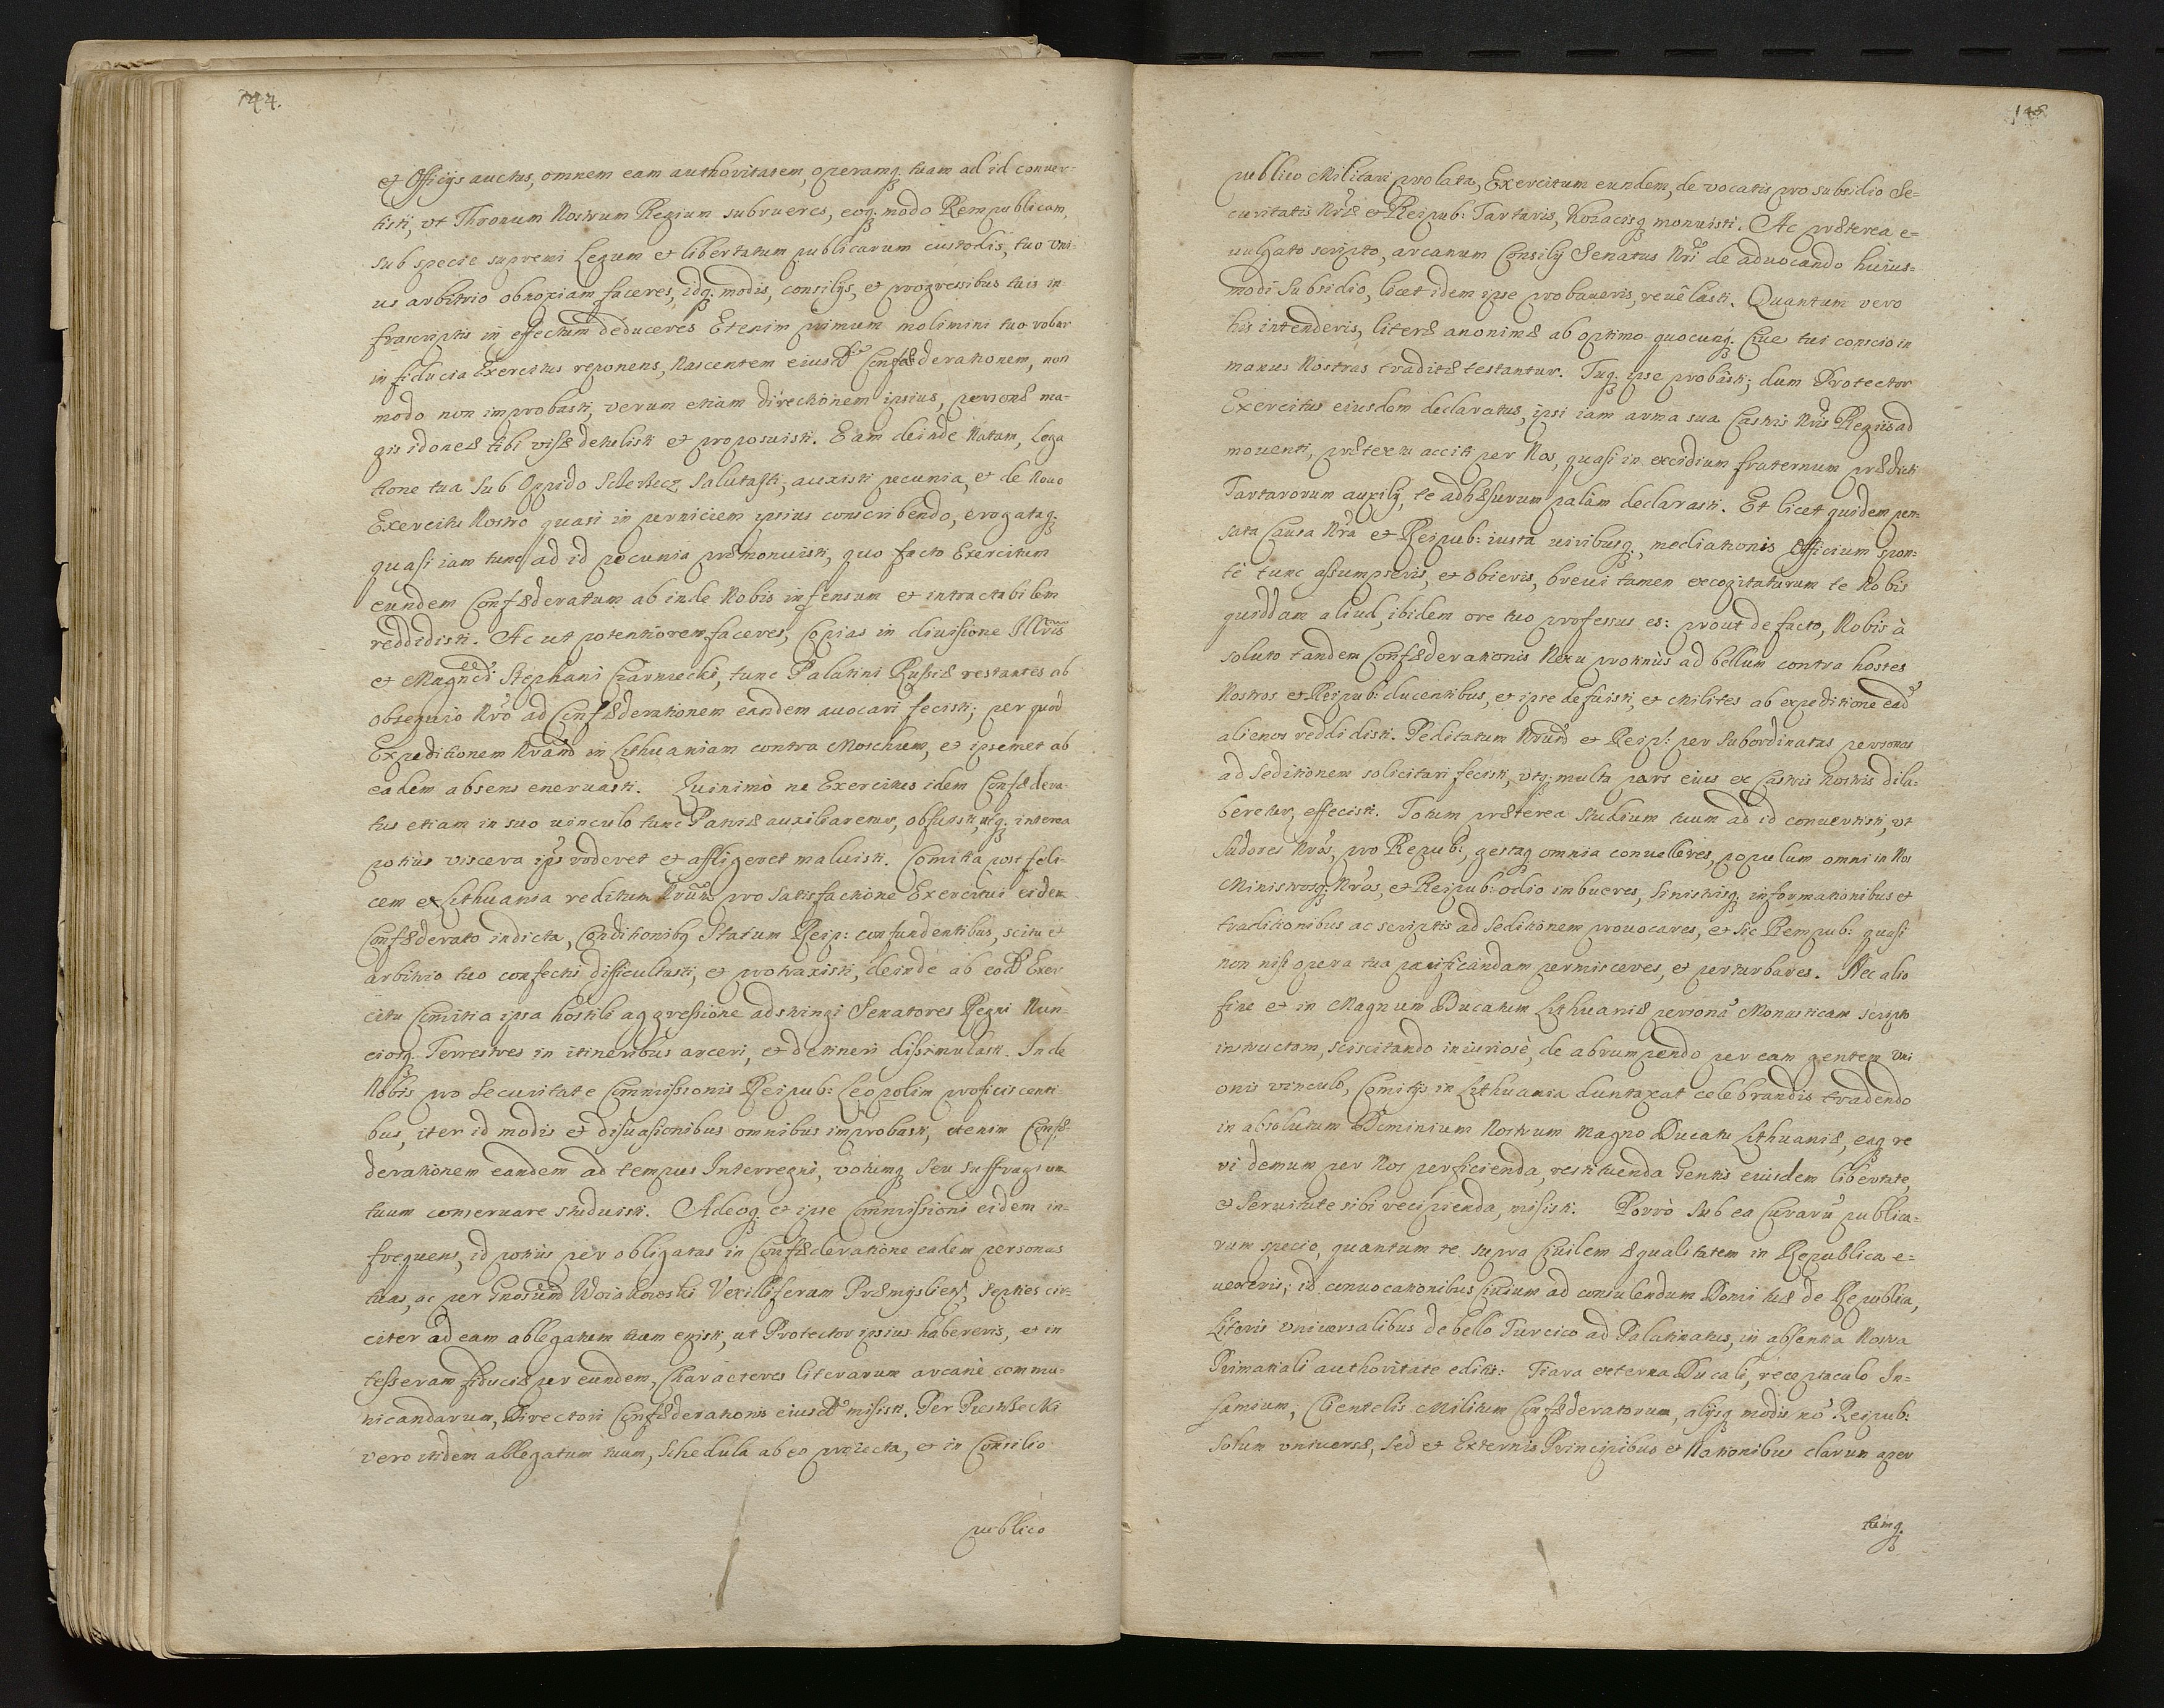 144.
et Officijs auctus, omnem eam authoritatem, operamq. tuam ad id conuer-
tisti, vt Thronum Nostrum Regium subrueres, eoq. modo Rempublicam,
sub specie supremi Legum et libertatum publicarum custodis, tuo vni-
us arbitrio obnoxiam faceres, idq. modis, consilijs, et progressibus tuis in-
frascriptis in effectum deduceres Etenim primum molimini tuo robur
in fiducia Exercitus reponens, Nascentem eiusd Confæderationem, non
modo non improbasti, verum etiam directionem ipsius, personæ ma-
gis idoneæ tibi visæ detulisti et proposuisti. Eam deinde Natam, Lega
tione tua sub Oppido Salutasti, auxisti pecunia, et de Nouo
Exercitu Nostro quasi in perniciem ipsius conscribendo, erogataq.
quasi iam tunc ad id pecunia præmonuisti, quo facto Exercitum
eundem Confæderatum ab inde Nobis infensum et intractabilem
reddidisti. Ac ut potentiorem faceres, Copias in diuisione Illris
et Magnci Stephani Czarniecki, tunc Palatini Russiæ restantes ab
obsequio Nro ad Confæderationem eandem auocari fecisti; per quod
Expeditionem Nram in Lithuaniam contra Moschum, et ipsemet ab
eadem absens eneruasti. Quinimò ne Exercitus idem Confædera-
tus etiam in suo uinculo tunc Patriæ auxiliaretur, obfuisti, utq. interea
potiùs viscera ips roderet et affligeret maluisti. Comitia post feli-
cem ex Lithuania reditum Nrum pro satisfactione Exercitui eidem
Confæderato indicta, Conditionibq Statum Reip: confundentibus, scitu et
arbitrio tuo confectis difficultasti, et protraxisti, deinde ab eod Exer
citu Comitia ipsa hostili aggressione adstringi Senatores Regni Nun-
ciosq. Terrestres in itineribus arceri, et detineri dissimulasti. Inde
Nobis pro Securitate Commissionis Reipub: Leopolim proficiscenti-
bus, iter id modis et disuasionibus omnibus improbasti, etenim Confæ-
derationem eandem ad tempus Interregni, votumq. seu suffragium
tuum conseruare studuisti. Adeoq. et ipse Commissioni eidem in-
frequens, id potius per obligatas in Confæderatione eadem personas
tuas, ac per Gnosum Woiakowski Vexilliferum Præmyslien, septies cir-
citer ad eam ablegatum tuum egisti, ut Protector ipsius habereris, et in
tesseram fiduciæ per eundem, Characteres literarum arcanè commu-
nicandarum, Directori Confæderationis eiusd misisti. Per
vero itidem ablegatum tuum, Schedula ab eo proiecta, et in Consilio
publico
145
publico Militari prolata, Exercitum eundem, de vocatis pro subsidio Se-
curitatis Nræ et Reipub: Tartaris, Kozacisq. monuisti. Ac præterea e-
uulgato scripto, arcanum Consilij Senatus Nri de aduocando huius-
modi Subsidio, licet idem ipse probaueris, reuelasti. Quantum vero
his intenderis, literæ anonimæ ab optimo quocunq. Ciue tui conscio in
manus Nostras traditæ testantur. Tuq. ipse probasti; dum Protector
Exercitus eiusdem declaratus, ipsi iam arma sua Castris Nris Regijs ad
mouenti, prætextu acciti per Nos, quasi in excidium fraternum prædicti
Tartarorum auxilij, te adhæsurum palàm declarasti. Et licet quidem pen-
sata Causa Nra et Reipub: iusta uiribusq., mediationis Officium spon-
tè tunc assumpseris, et obieris, breui tamen excogitaturum te Nobis
quiddam aliud, ibidem ore tuo professus es: prout de facto, Nobis à
soluto tandem Confæderationis Nexu protinùs ad bellum contra hostes
Nostros et Reipub: ducentibus, et ipse defuisti, et Milites ab expeditione ead
alienos reddidisti. Peditatum Nrum et Reip: per Subordinatas personas
ad Seditionem solicitari fecisti, vtq. multa pars eius ex Castris Nostris dila-
beretur, effecisti. Totum præterea studium tuum ad id conuertisti, vt
Sudores Nros, pro Repub:, gestaq. omnia conuelleres, populum omni in Nos
Ministrosq. Nros, et Reipub: odio imbueres, sinistrisq. informationibus et
traditionibus ac scriptis ad Seditionem prouocares, et sic Rempub: quasi
non nisi opera tua pacificandam permisceres, et perturbares. Nec alio
fine et in Magnum Ducatum Lithuaniæ personã Monasticam scripto
instructam, sciscitando iniuriosè, de abrumpendo per eam gentem vni
onis vinculo, Comitijs in Lithuania duntaxat celebrandis tradendo
in absolutum Dominium Nostrum Magno Ducatu Lithuaniæ, eaq. re
vi demum per Nos perficienda, restituenda Gentis eiusdem libertate,
et Seruitute sibi recipienda, misisti. Porrò sub ea Curarũ publica-
rum specie, quantum te supra Ciuilem æqualitatem in Republica e-
uexeris; id conuocationibus Ciuium ad consulendum Domi tuæ de Republica,
Literis Vniuersalibus de bello Turcico ad Palatinatus, in absentia Nostra
Primatiali authoritate editis: Tiara externa Ducali, receptaculo In-
famium, Clientelis Militum Confæderatorum, alijsq. modis nõ Reipub:
Solum vniuersæ, sed et Externis Principibus et Nationibus clarum aper
tumq.